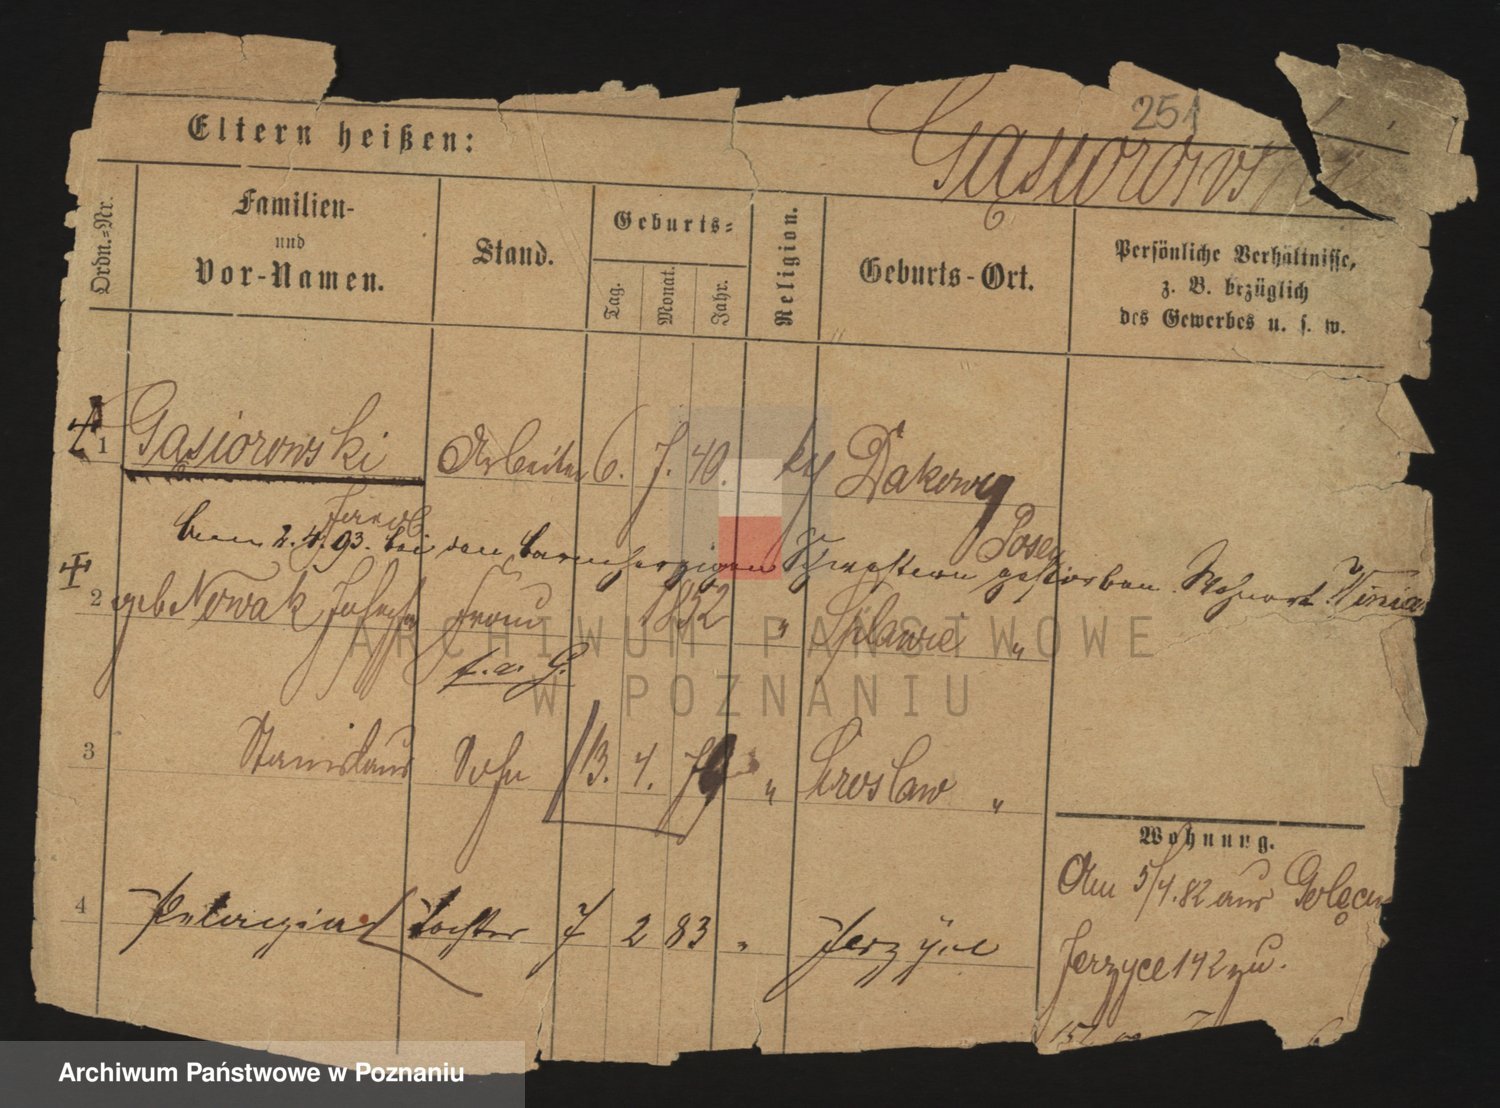 251
Gąsiorowski
Eltern heißen:
Ordn.-Nr.
Familien-
und
Vor-Namen.
Stand.
Geburts-
Tag.
Monat.
Jahr.
Religion.
Geburts-Ort.
Persönliche Verhältnisse,
z. B. bezüglich
des Gewerbes u. s. w.
1 Gąsiorowski Arbeiter 6. 7. 40. kth Dakowy
Jacob Posen
2.4.93. bei den barmherzigen Schwestern gestorben. Wohnort
2 geb Nowak Josepha Frau 1852 " "
ARCHIWUM PAŃSTWOWE
W POZNANIU
3 Stanislaus Sohn 13. 4. " "
4 Pelagia Tochter 7 2 83 "
Wohnung.
Am 5/4.82 aus
Jerzyce 142 zu.
Archiwum Państwowe w Poznaniu